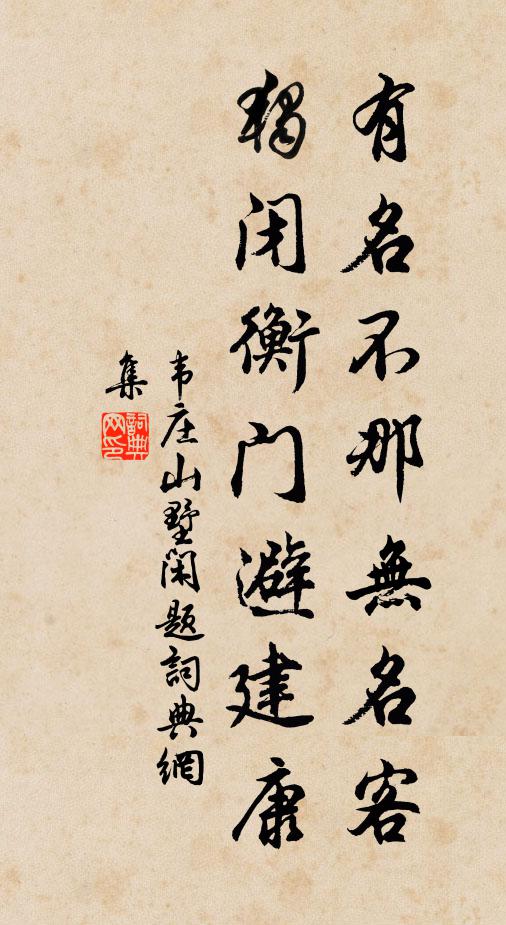 有名不那無名客
獨闭衡门避建康
韦庄山墅闲题詞典網
集
詞典网印